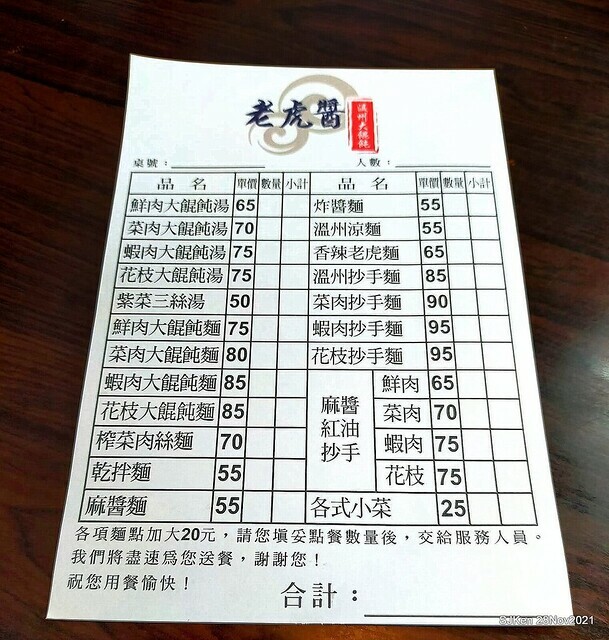 老虎醬
溫州大餛飩
桌號： 人數：
品名 單價 數量 小計 品名 單價 數量 小計
鮮肉大餛飩湯 65 炸醬麵 55
菜肉大餛飩湯 70 溫州涼麵 55
蝦肉大餛飩湯 75 香辣老虎麵 65
花枝大餛飩湯 75 溫州抄手麵 85
紫菜三絲湯 50 菜肉抄手麵 90
鮮肉大餛飩麵 75 蝦肉抄手麵 95
菜肉大餛飩麵 80 花枝抄手麵 95
蝦肉大餛飩麵 85 麻醬紅油抄手 鮮肉 65
花枝大餛飩麵 85 菜肉 70
榨菜肉絲麵 70 蝦肉 75
乾拌麵 55 花枝 75
麻醬麵 55 各式小菜 25
各項麵點加大20元，請您填妥點餐數量後，交給服務人員。
我們將盡速為您送餐，謝謝您！
祝您用餐愉快！
合計：
SJKen 23Nov2021